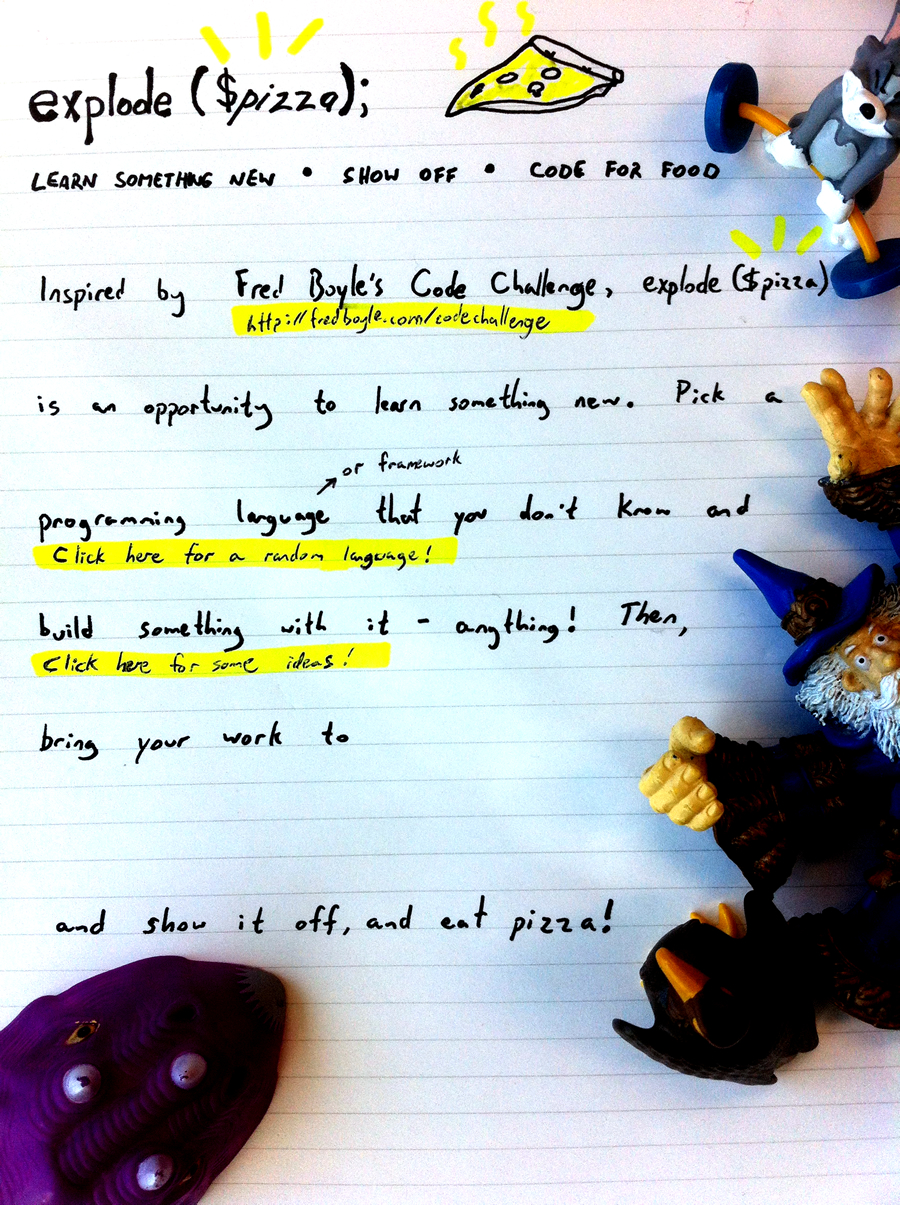 explode ($pizza);
LEARN SOMETHING NEW • SHOW OFF • CODE FOR FOOD
Inspired by Fred Boyle's Code Challenge, explode ($pizza)
http://fredboyle.com/codechallenge
is an opportunity to learn something new. Pick a
or framework
programming language that you don't know and
Click here for a random language!
build something with it - anything! Then,
Click here for some ideas!
bring your work to
and show it off, and eat pizza!